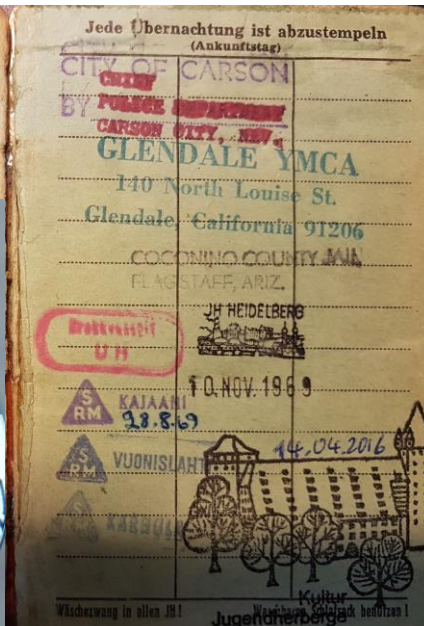 Jede Übernachtung ist abzustempeln
(Ankunftstag)
CITY OF CARSON
CHIEF
BY POLICE DEPARTMENT
CARSON CITY, NEV.
GLENDALE YMCA
140 North Louise St.
Glendale, California 91206
COCONINO COUNTY JAIL
FLAGSTAFF, ARIZ.
JH HEIDELBERG
UH
10. NOV. 1969
SRM KAJAANI
28.8.69
14.04.2016
SRM VUONISLAHTI
SRM
Kultur
Jugendherberge
Wäschezwang in allen JH!
Schlafsack benützen!